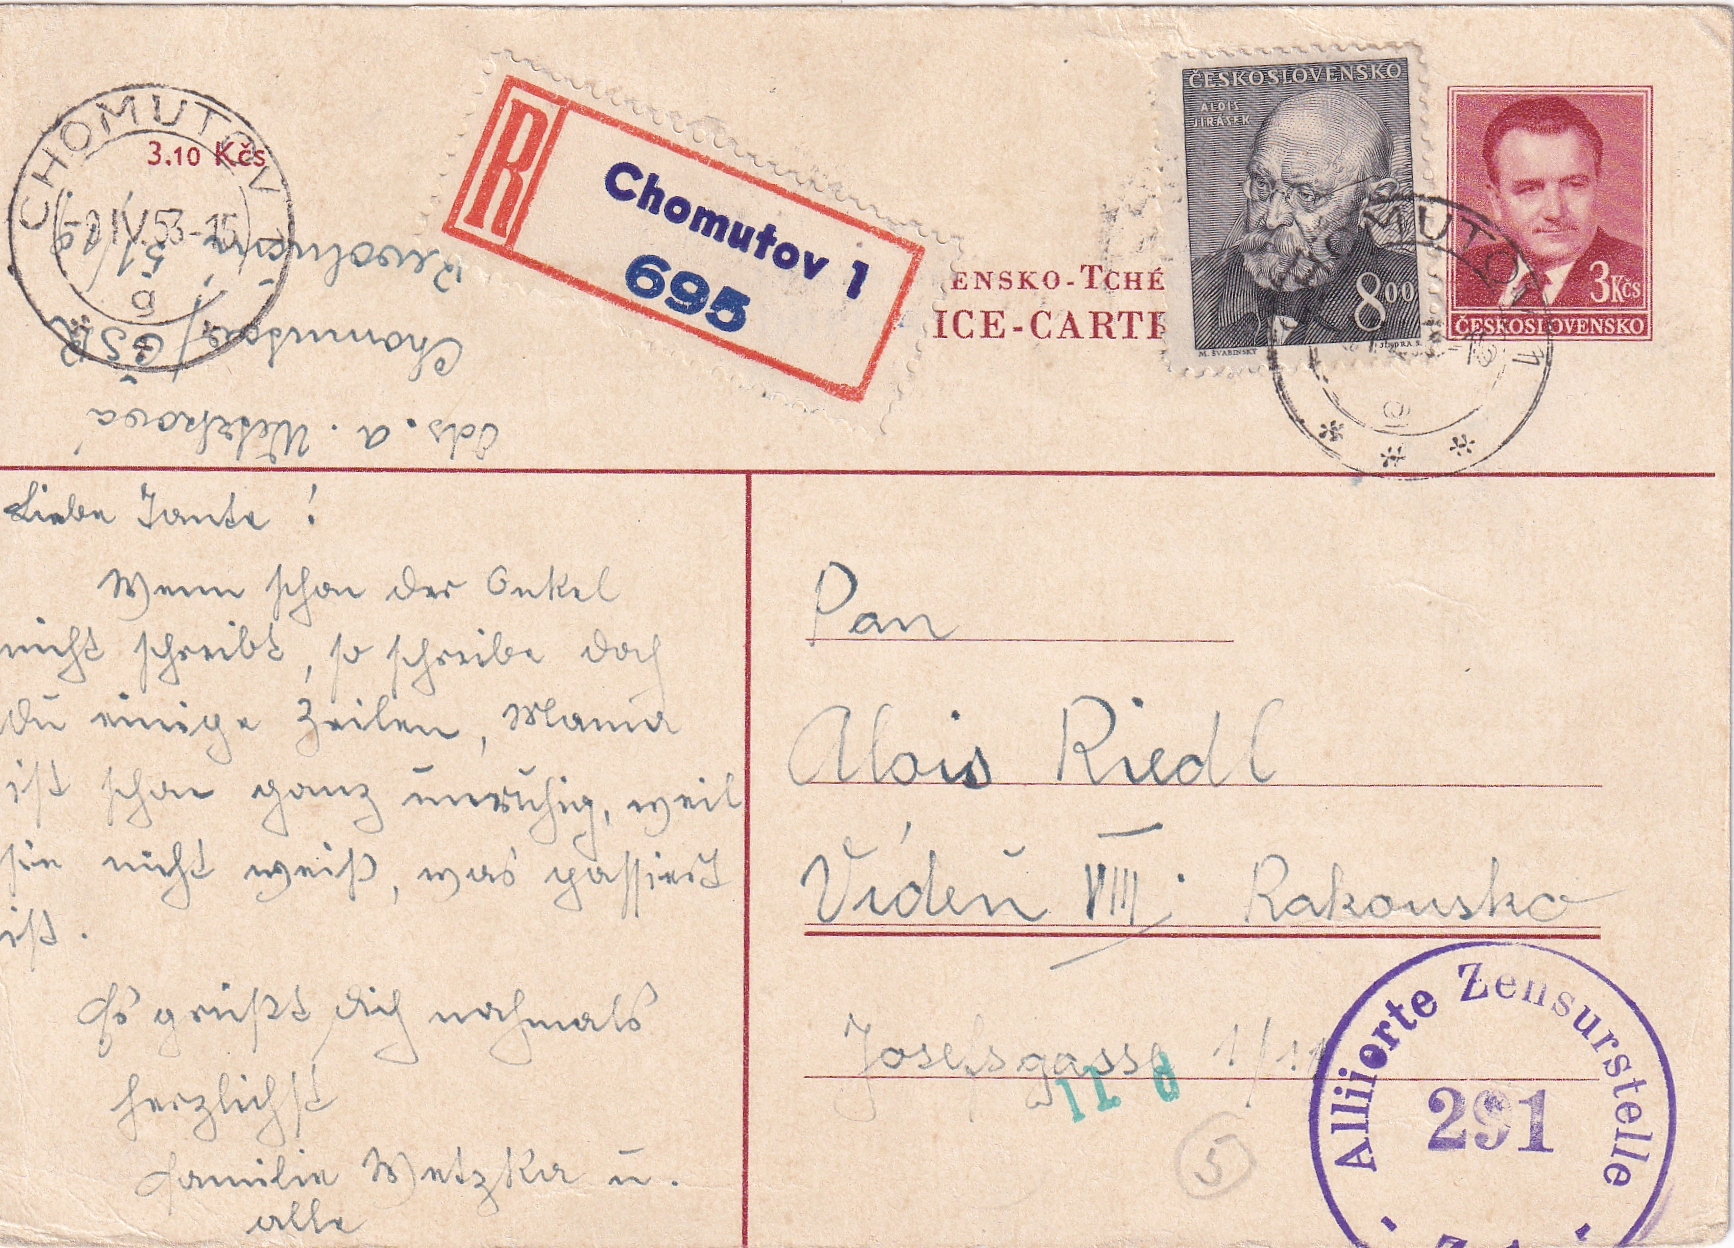 CHOMUTOV
3.10 Kčs
-2.IV.53-15
a
R
Chomutov 1
695
ENSKO-TCHÉ
ICE-CARTE
ČESKOSLOVENSKO
ALOIS
JIRÁSEK
800
M. ŠVABINSKÝ
JINDRA S.
3Kčs
ČESKOSLOVENSKO
OMUTOV 1
Ods. A. Wetzková
Chomutov / ČSR
51/19
Liebe Tante!
Wenn schon der Onkel
nicht schreibt, so schreibe doch
du einige Zeilen, Mama
ist schon ganz unruhig, weil
sie nicht weiß, was passiert
ist.
Es grüßt dich nochmals
herzlichst
Familie Wetzka u.
alle
Pan
Alois Riedl
Vídeň VIII, Rakousko
Josefsgasse 1/11
5
Alliierte Zensurstelle
291